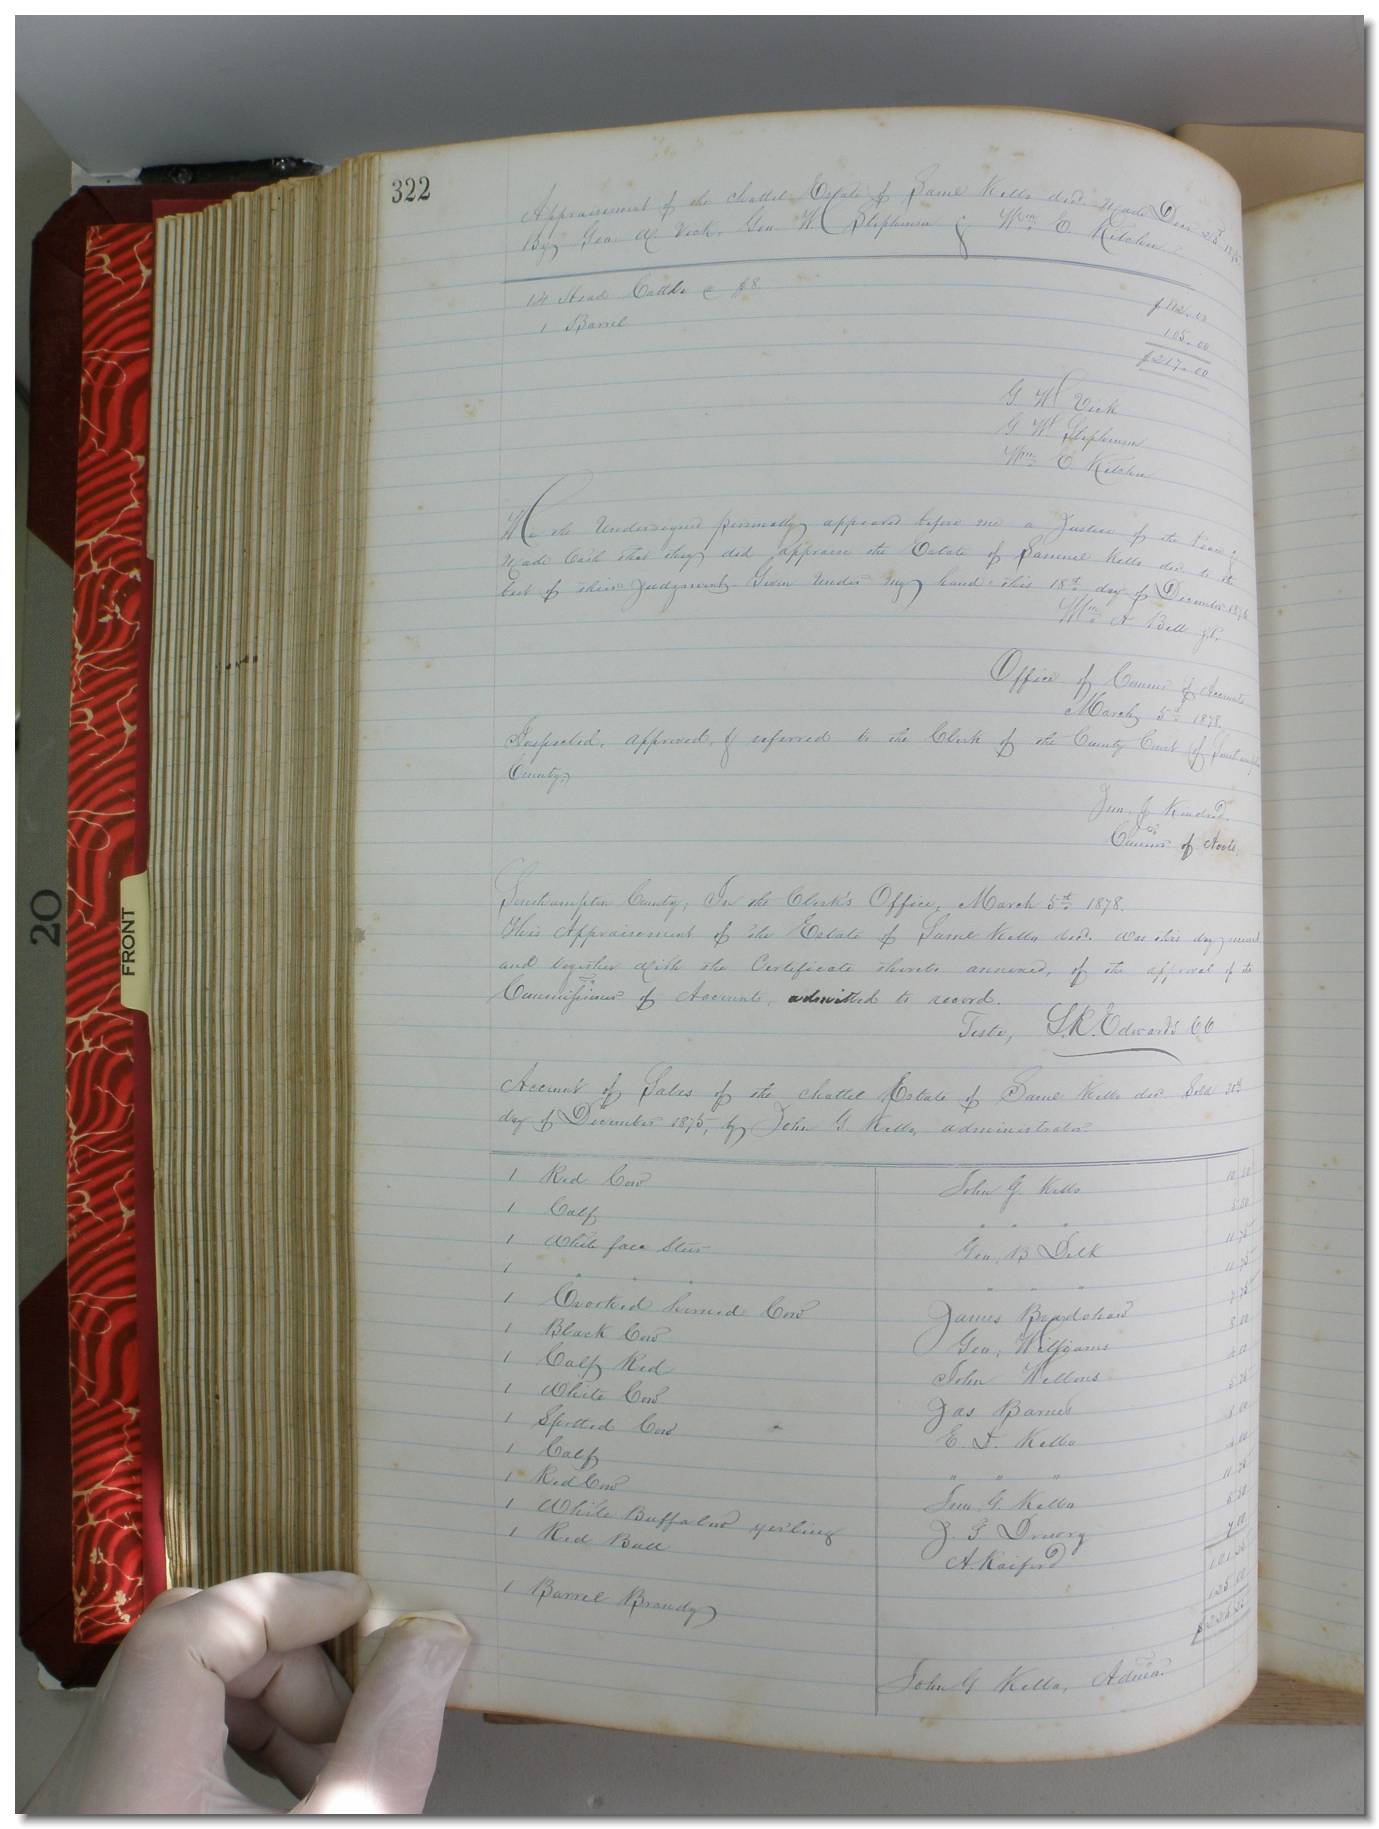 322
Appraisement of the chattel Estate of Saml Kello decd. made Decr 1875
By Geo. W. Vick, Geo. W. Stephenson & Wm. E. Kitchen
14 Head Cattle @ $8. $112.00
1 Barrel 105.00
$217.00
G W Vick
G W Stephenson
Wm. E Kitchen
We the Undersigned personally appeared before me a Justice of the Peace &
made Oath that they did appraise the Estate of Samuel Kello decd. to the
best of their Judgment Given under my hand this 18th day of December 1875
Wm. A Bell J.P.
Office of Commr of Accounts
March 5th 1878.
Inspected, approved, & referred to the Clerk of the County Court of Southampton
County,
Jno. J. Kindred.
Commr of Accts.
Southampton County, In the Clerk's Office, March 5th 1878.
This Appraisement of the Estate of Saml Kello decd. was this day received
and together with the Certificate thereto annexed, of the approval of the
Commissioner of Accounts, admitted to record.
Teste, L.R. Edwards CC
Account of Sales of the chattel Estate of Saml Kello decd Sold 20th
day of December 1875, by John G. Kello, administrator.
1 Red Cow John G. Kello
1 Calf " " " 5.50
1 White face Steer Geo. B Delk 11.75
1 " " " " " " 11.75
1 Crooked horned Cow James Beadshaw
1 Black Cow Geo. Williams 8.00
1 Calf Red John Wellons 4.00
1 White Cow Jas Barnes 5.75
1 Spotted Cow E. T. Kello 8.00
1 Calf " " " 4.00
1 Red Cow Jno. G. Kello 11.75
1 White Buffalow yerling J. T. Drewry 5.50
1 Red Bull A. Raiford 7.00
1 Barrel Brandy 125.00
John G Kello, Admr.
FRONT
20